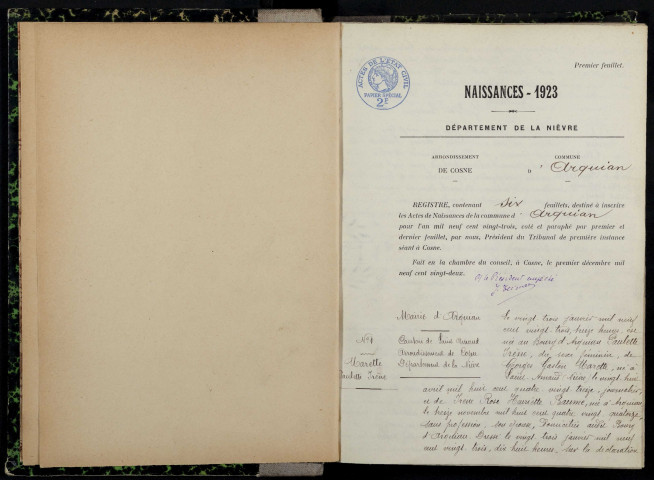 Premier feuillet.
ACTES DE L'ETAT CIVIL
PAPIER SPÉCIAL
2F
NAISSANCES - 1923
DÉPARTEMENT DE LA NIÈVRE
ARRONDISSEMENT
DE COSNE
COMMUNE
d'Arquian
REGISTRE, contenant six feuillets, destiné à inscrire
les Actes de Naissances de la commune d'Arquian
pour l'an mil neuf cent vingt-trois, coté et paraphé par premier et
dernier feuillet, par nous, Président du Tribunal de première instance
séant à Cosne.
Fait en la chambre du conseil, à Cosne, le premier décembre mil
neuf cent vingt-deux.
Président
Mairie d'Arquian
Canton de Saint Amand
Arrondissement de Cosne
Département de la Nièvre
N° 1
Marotte
Paulette Irène
Le vingt trois janvier mil neuf
cent vingt trois, treize heures, est
née au Bourg d'Arquian Paulette
Irène, du sexe féminin, de
Georges Gaston Marotte, né à
Saint Amand Nièvre le vingt huit
avril mil huit cent quatre vingt treize, journalier,
et de Irène Rosa Henriette, née à Arquian
le treize novembre mil huit cent quatre vingt quatorze,
sans profession, son épouse, domiciliés audit Bourg
d'Arquian Dressé le vingt trois janvier mil neuf
cent vingt trois, dix huit heures, sur la déclaration